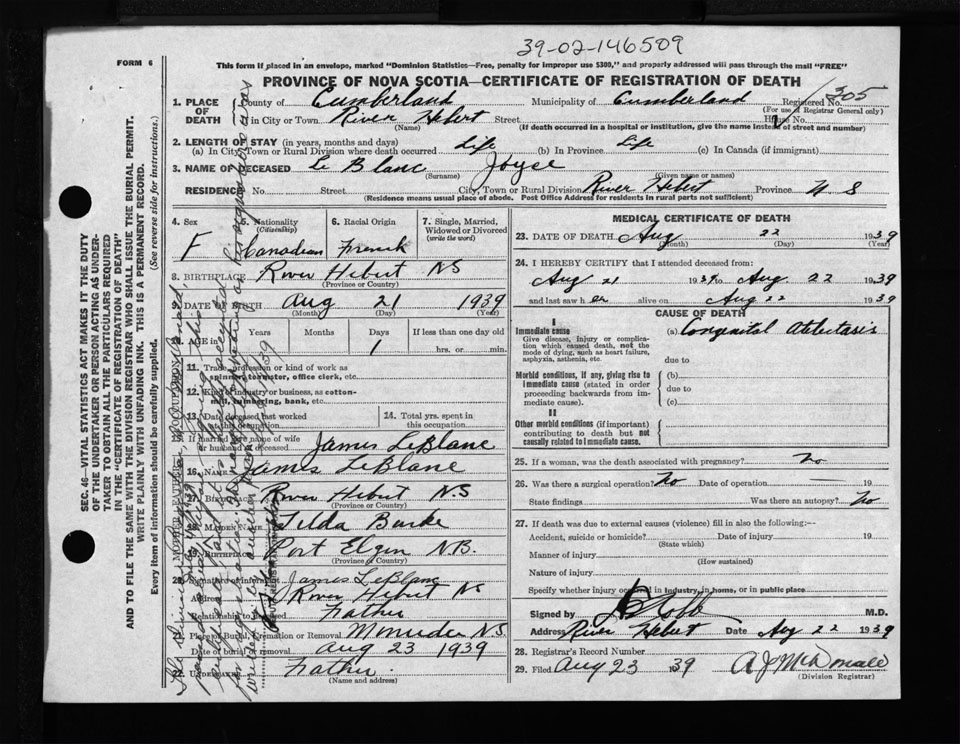 39-02-146509
FORM 6
This form if placed in an envelope, marked "Dominion Statistics—Free, penalty for improper use $300," and properly addressed will pass through the mail "FREE"
PROVINCE OF NOVA SCOTIA—CERTIFICATE OF REGISTRATION OF DEATH
1. PLACE OF DEATH County of Cumberland Municipality of Cumberland Registered No. 305
(For use of Registrar General only)
in City or Town River Hebert Street House No.
(Name) (If death occurred in a hospital or institution, give the name instead of street and number)
2. LENGTH OF STAY (in years, months and days)
(a) In City, Town or Rural Division where death occurred Life (b) In Province Life (c) In Canada (if immigrant)
3. NAME OF DECEASED Le Blanc Joyse
(Surname) (Given name or names)
RESIDENCE No. Street City, Town or Rural Division River Hebert Province N S
(Residence means usual place of abode. Post Office Address for residents in rural parts not sufficient)
4. Sex F
5. Nationality (Citizenship) Canadian
6. Racial Origin French
7. Single, Married, Widowed or Divorced (write the word)
8. BIRTHPLACE River Hebert NS
(Province or Country)
9. DATE OF BIRTH Aug 21 1939
(Month) (Day) (Year)
10. AGE in Years Months Days If less than one day old
1 hrs. or min.
11. Trade, profession or kind of work as spinner, teamster, office clerk, etc.
12. Kind of industry or business, as cotton-mill, lumbering, bank, etc.
13. Date deceased last worked at this occupation
14. Total yrs. spent in this occupation
15. If married give name of wife or husband of deceased James LeBlanc
16. NAME James LeBlanc
17. BIRTHPLACE River Hebert N.S
(Province or Country)
18. MAIDEN NAME Zelda Burke
19. BIRTHPLACE Port Elgin N.B.
(Province or Country)
20. Signature of informant James LeBlanc
Address River Hebert NS
Relationship to deceased Father
21. Place of Burial, Cremation or Removal N.S.
Date of burial or removal Aug 23 1939
22. UNDERTAKER Father
(Name and address)
MEDICAL CERTIFICATE OF DEATH
23. DATE OF DEATH Aug 22 1939
(Month) (Day) (Year)
24. I HEREBY CERTIFY that I attended deceased from:
Aug 21 1939 to Aug. 22 1939
and last saw h er alive on Aug 22 1939
CAUSE OF DEATH
I
Immediate cause (a) Congenital Atelectasis
Give disease, injury or complication which caused death, not the mode of dying, such as heart failure, asphyxia, asthenia, etc.
due to
Morbid conditions, if any, giving rise to immediate cause (stated in order proceeding backwards from immediate cause).
(b)
due to
(c)
II
Other morbid conditions (if important) contributing to death but not causally related to immediate cause.
25. If a woman, was the death associated with pregnancy? No
26. Was there a surgical operation? No Date of operation — 19
State findings Was there an autopsy? No
27. If death was due to external causes (violence) fill in also the following:—
Accident, suicide or homicide? Date of injury 19
(State which)
Manner of injury
(How sustained)
Nature of injury
Specify whether injury occurred in industry, in home, or in public place
Signed by M.D.
Address River Hebert Date Aug 22 1939
28. Registrar's Record Number
29. Filed Aug 23 39 A J McDonald
(Division Registrar)
SEC. 46—VITAL STATISTICS ACT MAKES IT THE DUTY OF THE UNDERTAKER OR PERSON ACTING AS UNDERTAKER TO OBTAIN ALL THE PARTICULARS REQUIRED IN THE "CERTIFICATE OF REGISTRATION OF DEATH"
AND TO FILE THE SAME WITH THE DIVISION REGISTRAR WHO SHALL ISSUE THE BURIAL PERMIT.
WRITE PLAINLY WITH UNFADING INK. THIS IS A PERMANENT RECORD.
Every item of information should be carefully supplied. (See reverse side for instructions.)